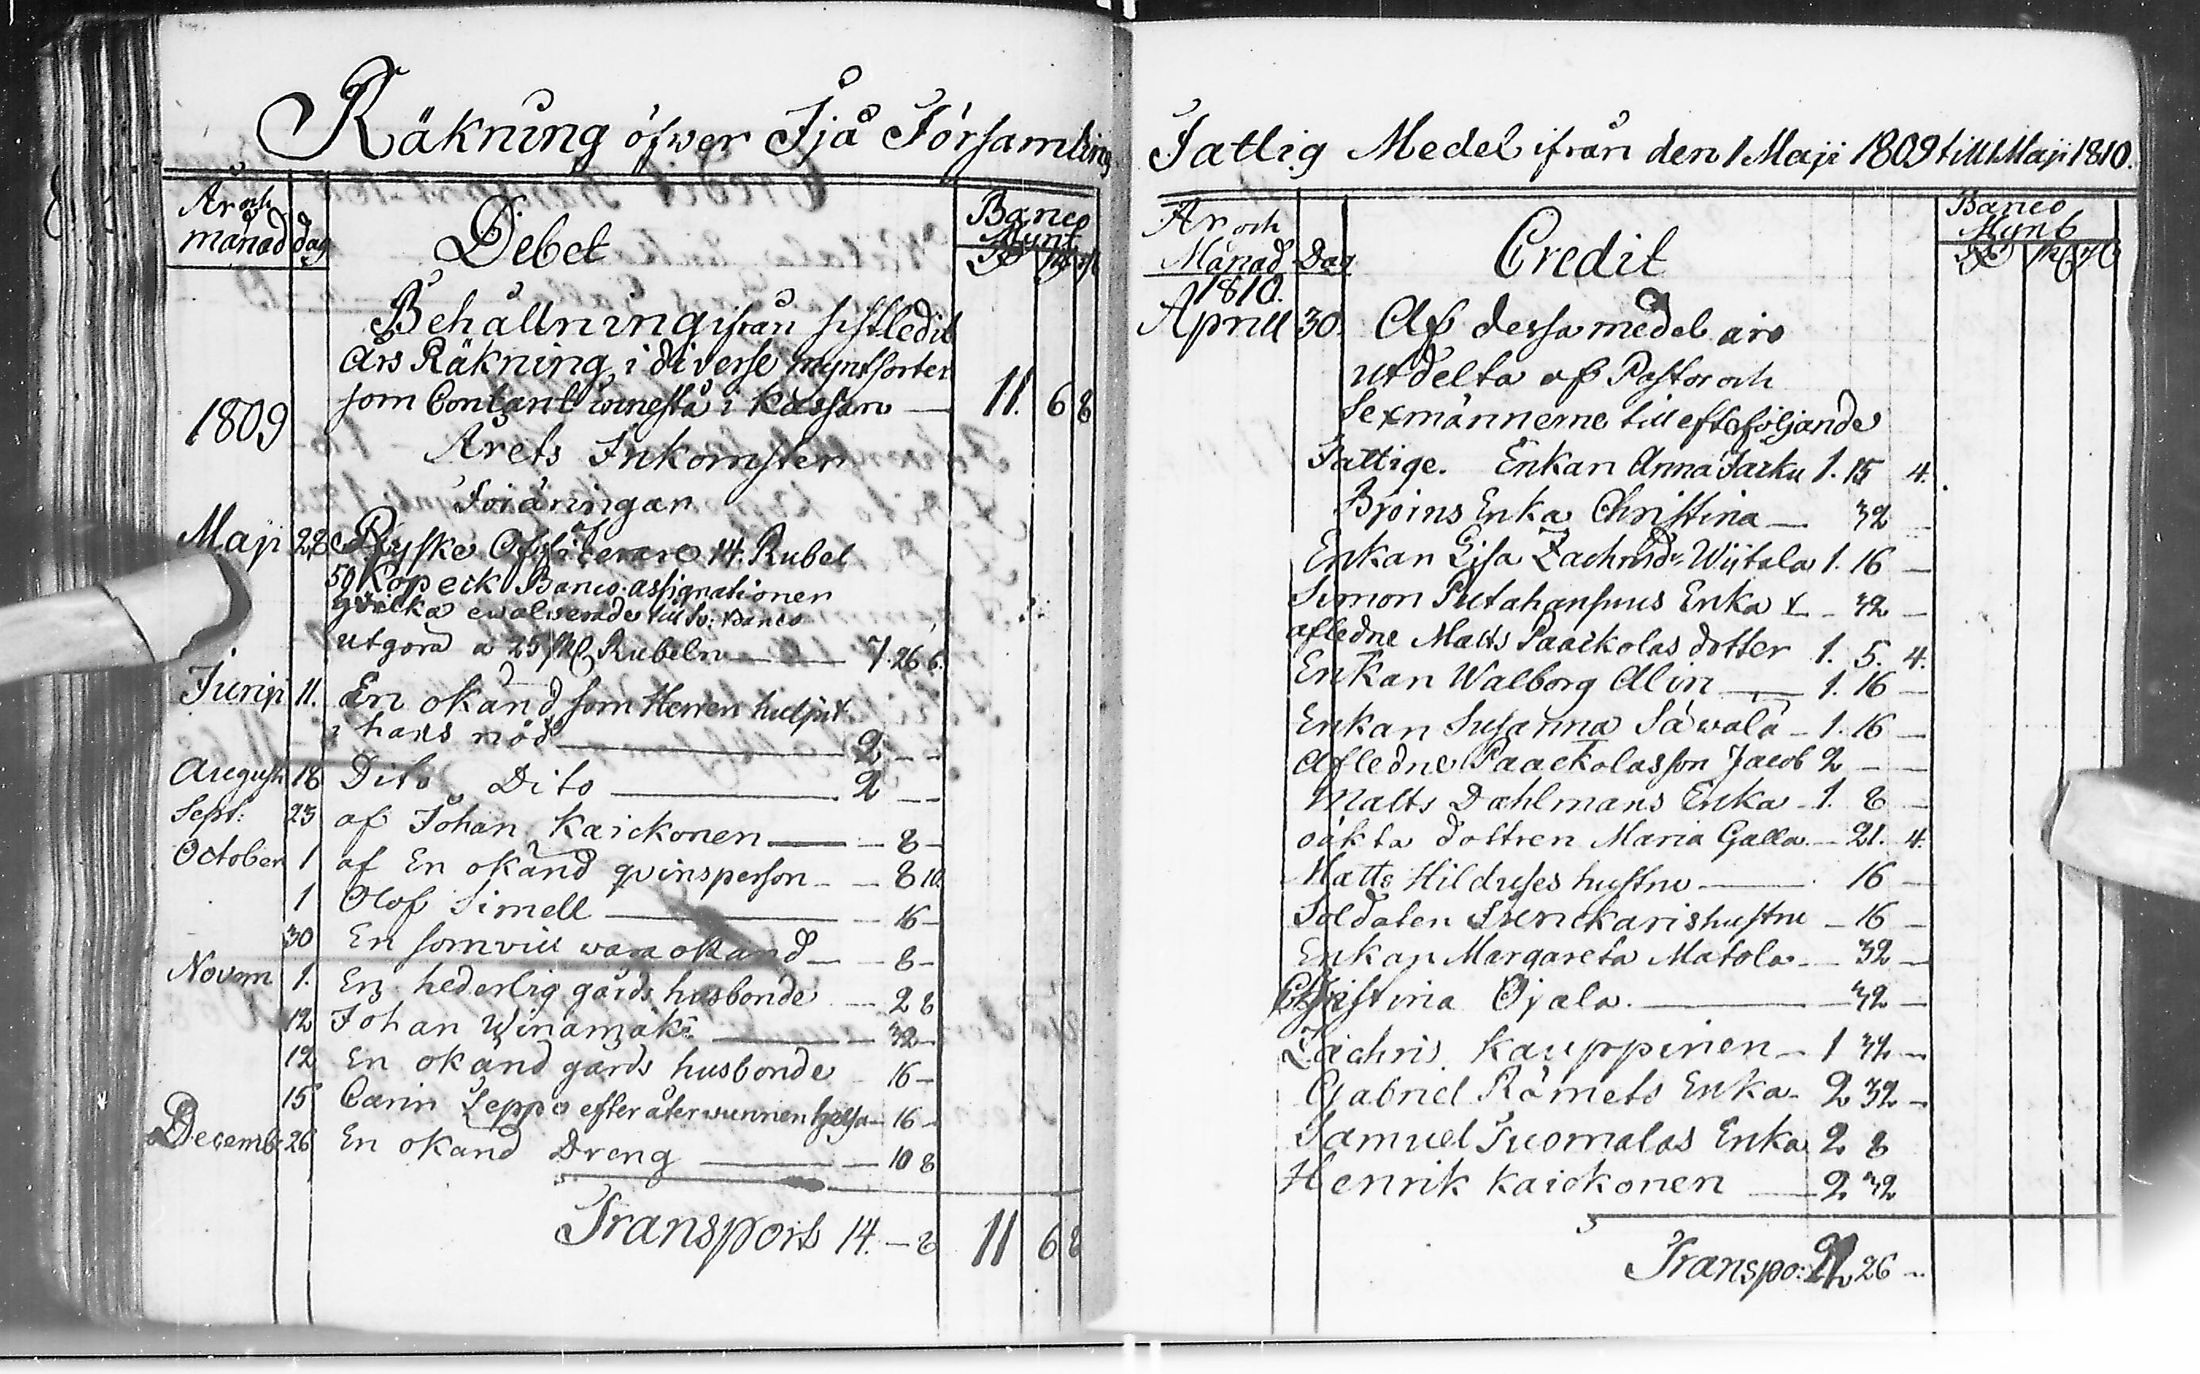 Räkning öfwer Ijå Församling
År och
månad dag
Debet
Banco
Mynt
Behållning ifrån sistledit
års Räkning i diverse myntsorter
som Contant innestå i Kassan — 11. 6 8
1809
Årets Inkomster
Foräringar
Maji 28 Ryske Officerare 14. Rubel
50 Kopeck Banco assignationer
hvilka
utgöra a 25 Rubeln — 7. 26 6.
Junji 11. En okänd som Herren hulpit
i hans nöd — 2 — —
Augusti 18 Dito Dito — 2 — —
Sept: 23 af Johan Kaickonen — — 8 —
October 1 af En okänd qvinsperson — — 8 10.
1 Olof Simell — — 16 —
30 En som vill wara okänd — — 8 —
Novem 1. En hederlig gårds husbonde — 2 8
12 Johan Winamäki — — 32 —
12 En okänd gårds husbonde — 16 —
15 Carin Seppo efter återwunnen helsa — 16 —
Decemb 26 En okand Dreng — — 10 8
Transport 14. — 8 11 6 8
Fatlig Medel ifrån den 1 Maji 1809 till 1 Maji 1810.
År och
Månad Dag
Credit
Banco
Mynt
1810.
Aprill 30. Af dessa medel äro
utdelta af Pastor och
Sexmännerne till efterföljande
Fattige. Enkan Anna Jarku 1. 15 4.
Björns Enka Christina — 32 —
Enkan Lisa Zachrisd:r Wiitala 1. 16 —
Simon Putahansuus Enka — 32 —
afledne Matts Paackolas dotter 1. 5. 4.
Enkan Walborg Alin — 1. 16 —
Enkan Susanna Säwälä — 1. 16 —
Afledne Paackolas son Jacob 2 — —
Matts Dahlmans Enka — 1. 8 —
oäkta dottren Maria Galla — 21. 4.
Matts Hilduses hustru — 16 —
Soldaten hustru — 16 —
Enkan Margareta Matola — 32 —
Christina Ojala. — 32 —
Zachris Kauppinen — 1 32 —
Gabriel Rämets Enka — 2 32 —
Samuel Tuomalas Enka 2 8
Henrik Kaickonen — 2 32
Transpo: 26 —